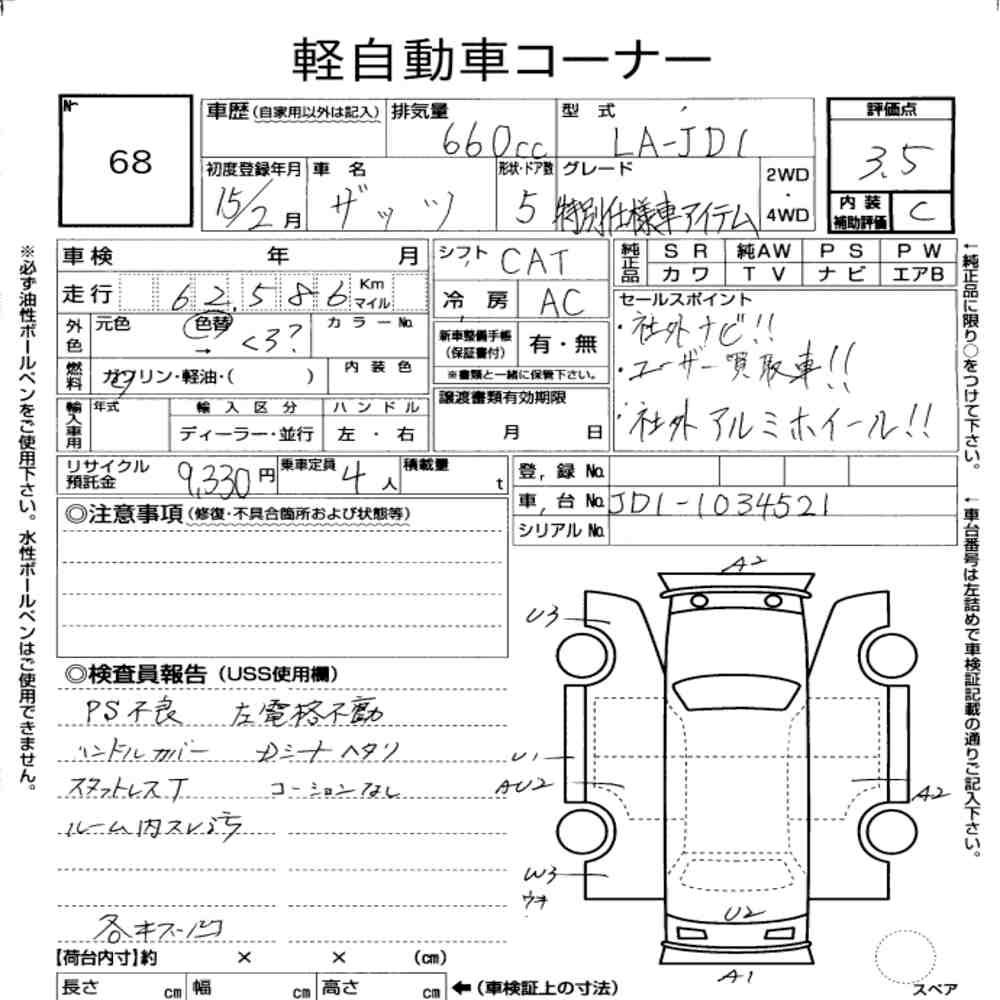 軽自動車コーナー
No.
68
車歴 (自家用以外は記入)
排気量
660cc
型式
LA-JD1
評価点
3.5
初度登録年月
15/2月
車名
ザッツ
形状・ドア数
5
グレード
特別仕様車アイテム
2WD
・
4WD
内装
補助評価
C
車検 年 月
シフト
CAT
純正品
SR 純AW PS PW
カワ TV ナビ エアB
走行 62,586 Km
マイル
冷房
AC
セールスポイント
・社外ナビ!!
・ユーザー買取車!!
・社外アルミホイール!!
外色
元色
色替
→ <3?
カラーNo.
新車整備手帳
(保証書付)
有・無
※書類と一緒に保管下さい。
燃料
ガソリン・軽油・( )
内装色
輸入車用
年式
輸入区分
ハンドル
ディーラー・並行
左・右
譲渡書類有効期限
月 日
リサイクル
預託金
9,330円
乗車定員
4人
積載量
t
登録No.
車台No. JD1-1034521
シリアルNo.
◎注意事項 (修復・不具合箇所および状態等)
◎検査員報告 (USS使用欄)
PS不良 左電格不動
ハンドルカバー Dシートヘタリ
スタットレスT コーションなし
ルーム内スレ汚
各キズ凹
A2
U3
U1
AU2
A2
W3
ウキ
U2
A1
スペア
【荷台内寸】約 × × (cm)
長さ cm 幅 cm 高さ cm ←(車検証上の寸法)
※必ず油性ボールペンをご使用下さい。水性ボールペンはご使用できません。
←純正品に限り○をつけて下さい。
←車台番号は左詰めで車検証記載の通りご記入下さい。